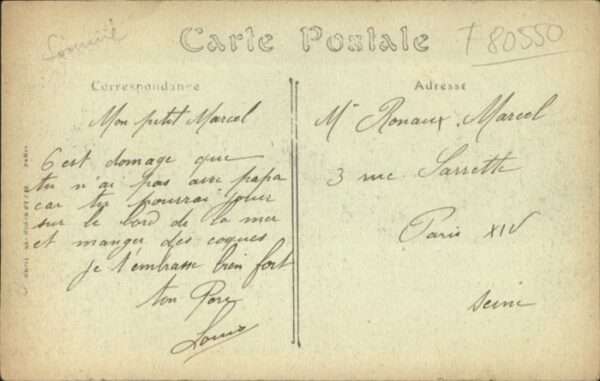 Carte Postale
T 80550
Correspondance
Mon petit Marcel
C est domage que
tu n'ai pas avec papa
car tu pourrai jouer
sur le bord de la mer
et manger des coques
je t'embrasse bien fort
ton Père
Louis
Adresse
Mr Ronaux Marcel
3 rue Sarrette
Paris XIV
Seine